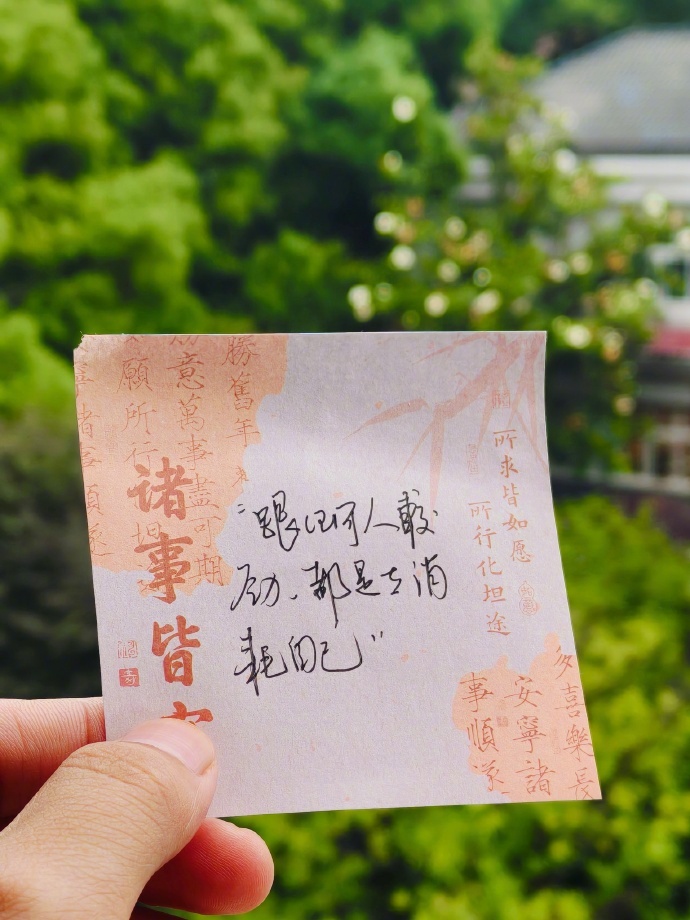 諸事皆
"跟任何人較
劲、都是在消
耗自己"
所求皆如愿
所行化坦途
勝舊年
意萬事盡可期
願所行坦
者事順遂
多喜樂長
安寧諸
事順遂